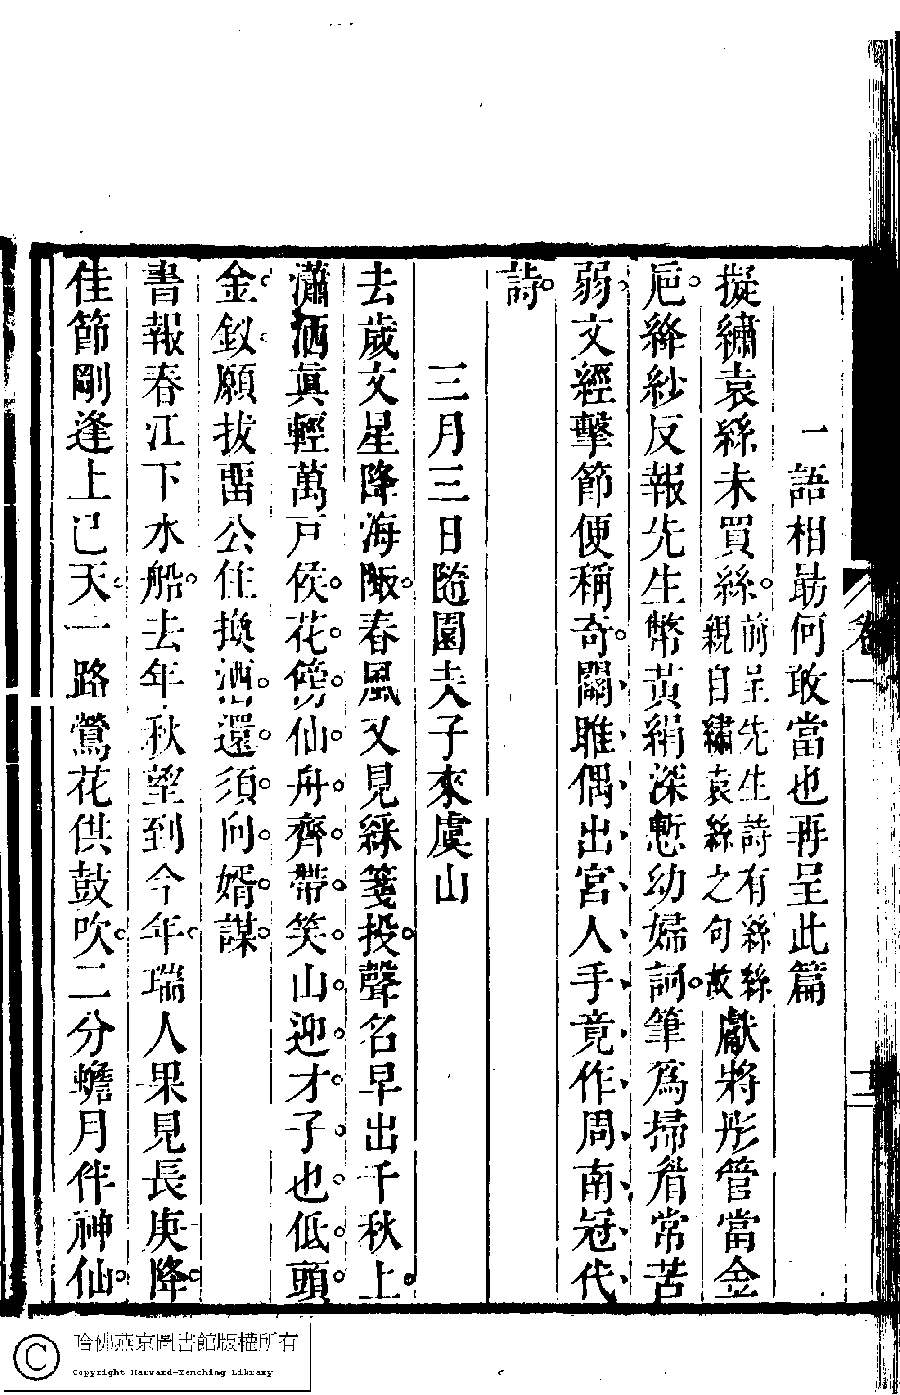 一語相勗何敢當也再呈此篇
擬繡袁絲未買絲。前呈先生詩有絲絲親自繡袁絲之句故獻將彤管當金
巵。絳紗反報先生幣黃絹深慙幼婦詞。筆爲掃眉常苦
弱。文經擊節便稱奇。關雎偶出宮人手竟作周南冠代
詩。
三月三日隨園夫子來虞山
去歲文星降海陬。春風又見綵箋投。聲名早出千秋上。
瀟洒眞輕萬戸侯。花傍仙舟齊帶笑。山迎才子也低頭。
金釵願拔畱公住換酒。還須向婿謀。
書報春江下水船。去年秋望到今年。瑞人果見長庚降。
佳節剛逢上巳天。一路鶯花供鼓吹。二分蟾月伴神仙。
卷一
二
哈佛燕京圖書館版權所有
Copyright Harvard-Yenching Library